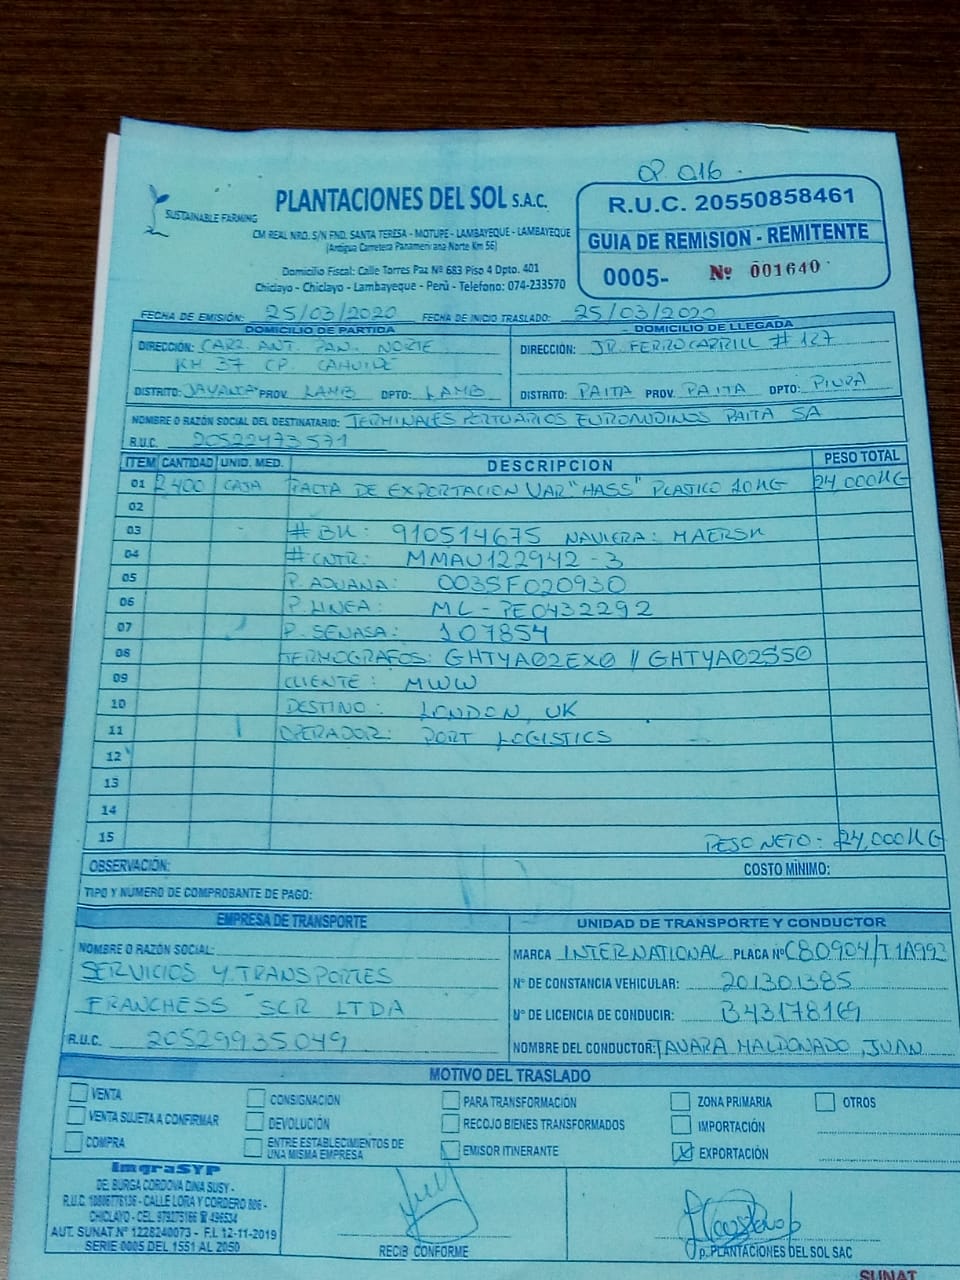 OP 016
SUSTAINABLE FARMING
PLANTACIONES DEL SOL S.A.C.
CM REAL NRO. S/N FND. SANTA TERESA - MOTUPE - LAMBAYEQUE - LAMBAYEQUE
(Antigua Carretera Panamericana Norte Km 56)
Domicilio Fiscal: Calle Torres Paz Nº 683 Piso 4 Dpto. 401
Chiclayo - Chiclayo - Lambayeque - Perú - Telefono: 074-233570
R.U.C. 20550858461
GUIA DE REMISION - REMITENTE
0005- Nº 001640
FECHA DE EMISIÓN: 25/03/2020 FECHA DE INICIO TRASLADO: 25/03/2020
DOMICILIO DE PARTIDA
DIRECCIÓN: CARR. ANT. PAN. NORTE
KM 37 CP. CAHUIDE
DISTRITO: JAYANCA PROV. LAMB DPTO: LAMB
DOMICILIO DE LLEGADA
DIRECCIÓN: JR. FERROCARRILL # 127
DISTRITO: PAITA PROV. PAITA DPTO: PIURA
NOMBRE O RAZÓN SOCIAL DEL DESTINATARIO: TERMINALES PORTUARIOS EUROANDINOS PAITA SA
R.U.C. 20522473571
ITEM CANTIDAD UNID. MED. DESCRIPCION PESO TOTAL
01 2400 CAJA PALTA DE EXPORTACION VAR "HASS" PLASTICO 10KG 24,000KG
02
03 # BK: 910514675 NAVIERA: MAERSK
04 # CNTR: MMAU122942-3
05 P. ADUANA: 0035F020930
06 P. LINEA: ML-PE0432292
07 P. SENASA: 107854
08 TERMOGRAFOS: GHTYA02EX0 // GHTYA02550
09 CLIENTE: MWW
10 DESTINO: LONDON, UK
11 OPERADOR: PORT LOGISTICS
12
13
14
15 PESO NETO: 24,000KG
OBSERVACIÓN: COSTO MÍNIMO:
TIPO Y NUMERO DE COMPROBANTE DE PAGO:
EMPRESA DE TRANSPORTE
NOMBRE O RAZÓN SOCIAL:
SERVICIOS Y TRANSPORTES
FRANCHESS SCR LTDA
R.U.C. 20529935049
UNIDAD DE TRANSPORTE Y CONDUCTOR
MARCA INTERNATIONAL PLACA Nº C80904/T1A993
Nº DE CONSTANCIA VEHICULAR: 201301385
Nº DE LICENCIA DE CONDUCIR: B43178169
NOMBRE DEL CONDUCTOR: TAVARA MALDONADO JUAN
MOTIVO DEL TRASLADO
VENTA
VENTA SUJETA A CONFIRMAR
COMPRA
CONSIGNACION
DEVOLUCIÓN
ENTRE ESTABLECIMIENTOS DE
UNA MISMA EMPRESA
PARA TRANSFORMACIÓN
RECOJO BIENES TRANSFORMADOS
EMISOR ITINERANTE
ZONA PRIMARIA
IMPORTACIÓN
EXPORTACIÓN
OTROS
ImgraSYP
DE: BURGA CORDOVA DINA SUSY -
CALLE LORA Y CORDERO 806 -
AUT. SUNAT Nº 1228240073 - F.I. 12-11-2019
SERIE 0005 DEL 1551 AL 2050
RECIBÍ CONFORME
p. PLANTACIONES DEL SOL SAC
SUNAT